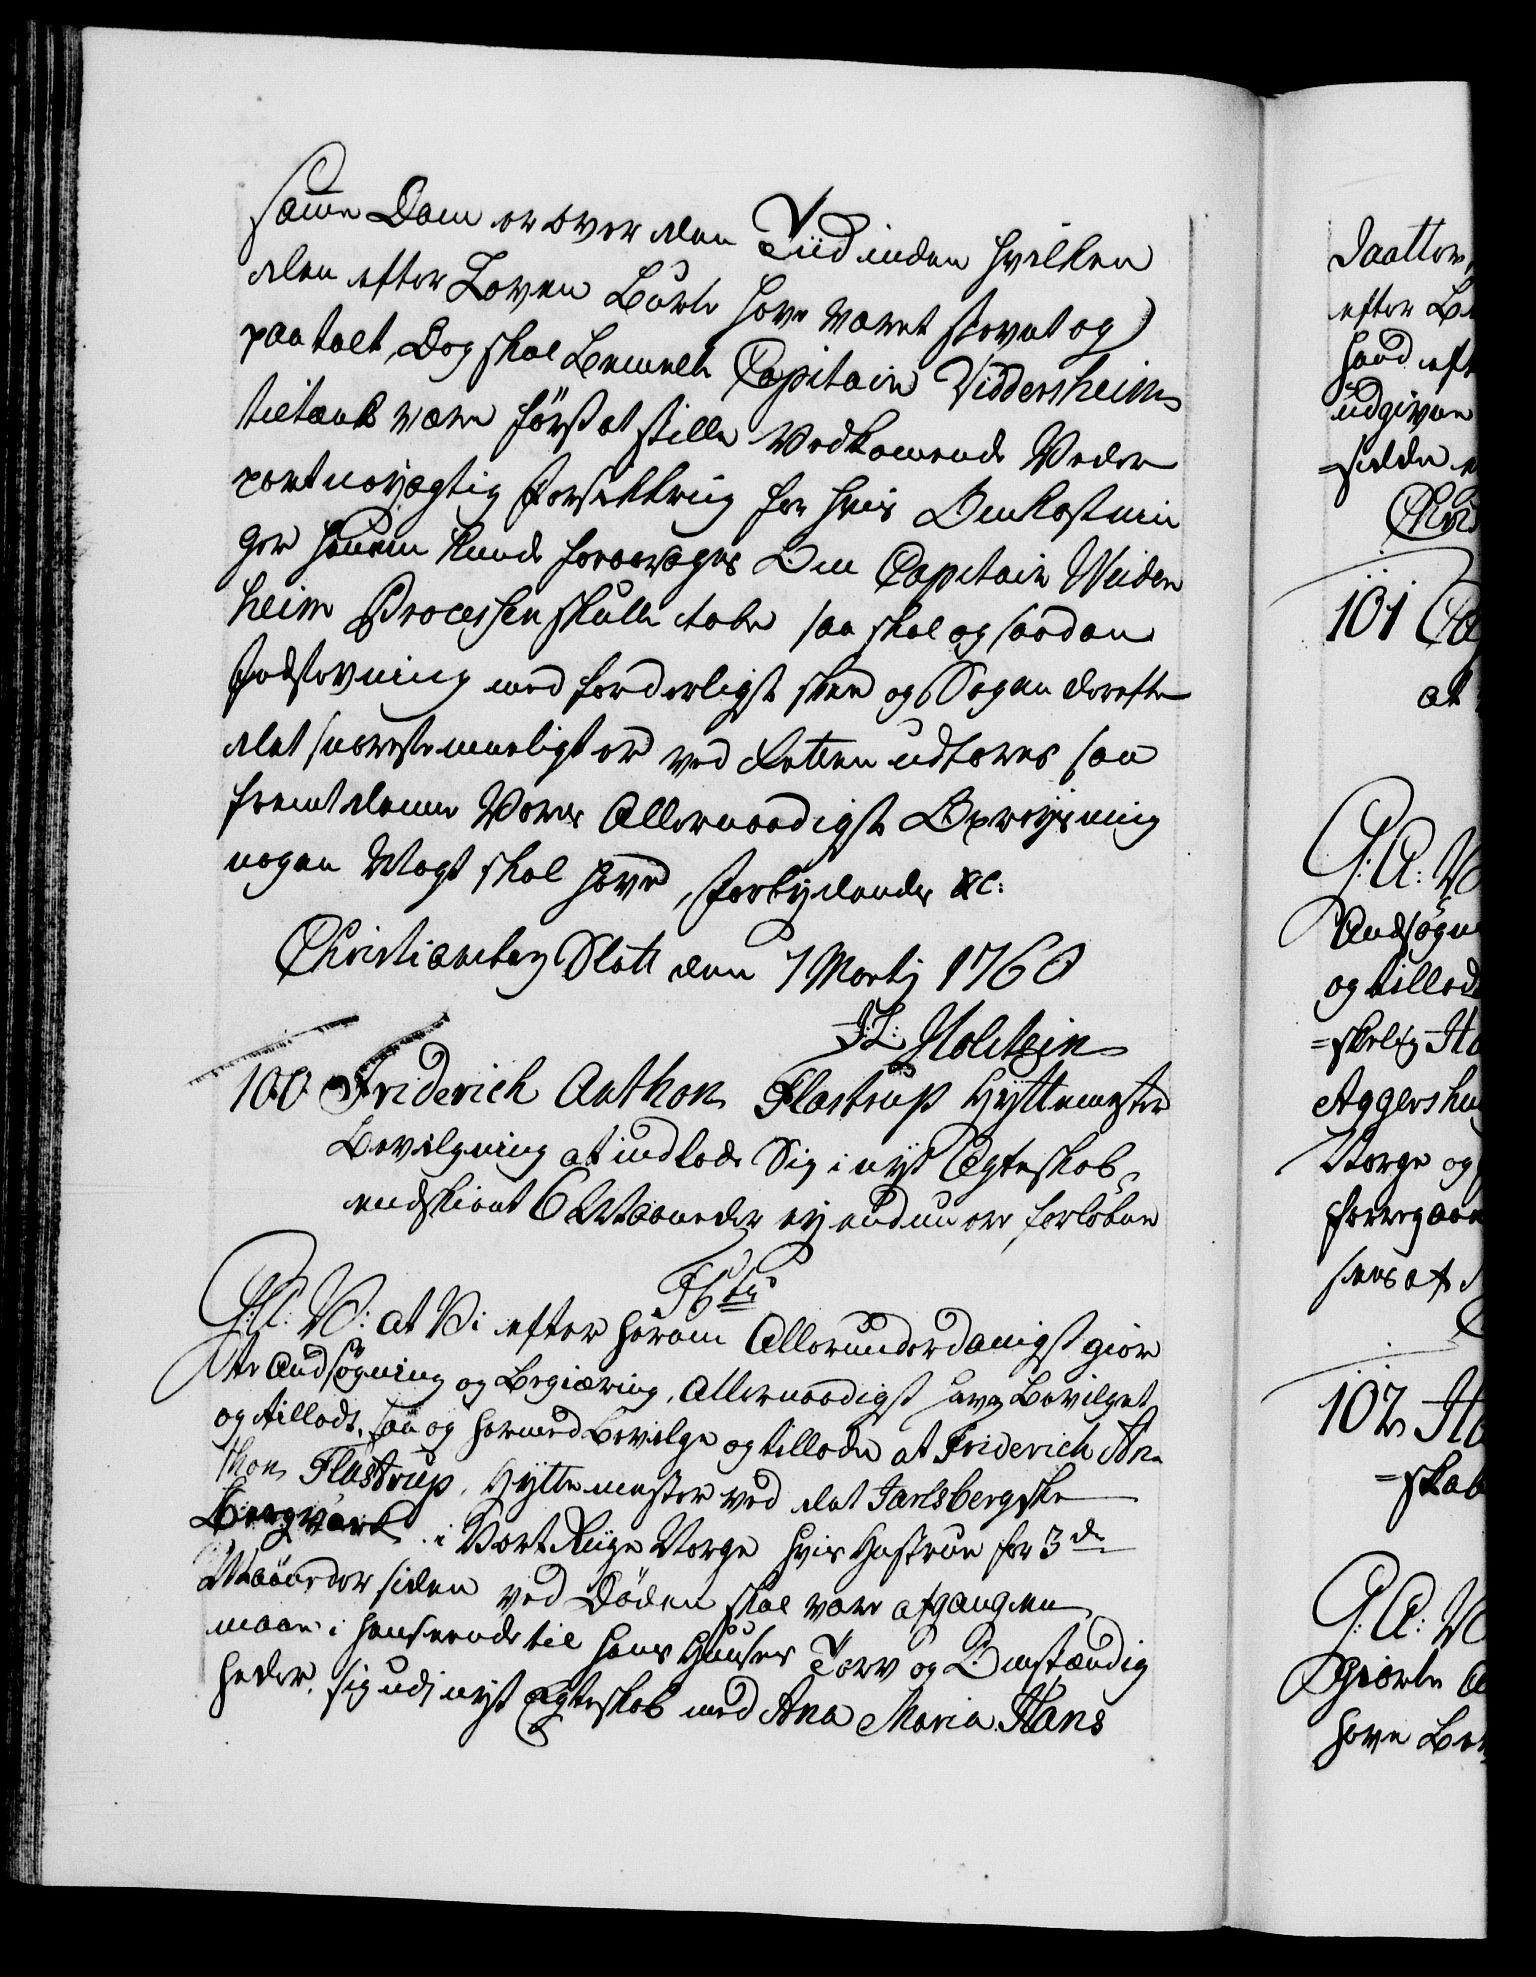 samme Dom er over den Tiid inden hvilken
den efter Loven burde have været stevnet og
paatalt, Dog skal bemelte Capitain Widdersheim
tiltænkt være først at stille Vedkommende Veder
partnøyagtig Forsikkring for hvis Omkostnin
ger hannem kunde foraarsages Om Capitain Weiders
heim Processen skulle tabe saa skal og saadan
Indstevning med forderligst skee og Sagen derefter
det snareste mueligt er ved Retten udføres saa
fremt denne Vores Allernaadigste Opreysning
nogen Magt skal have, Forbydendes &c:
Christiansborg Slott den 7 Martij 1760
J: L: Holstein
100 Friderich Anthon Flastrup Hyttemester
Bevilgning at indlade Sig i nyt Ægteskab
endskiønt 6 Maaneder ey endnu ere forløbne
G: A: V: at Vi efter herom Allerunderdanigst gior
te Ansøgning og Begiæring, Allernaadigst have bevilget
og tilladt, saa og hermed bevilge og tillade at Friderich An
thon Flastrup, Hyttemester ved det Jarlsbergske
Bergværk i Vort Rige Norge hvis Hustrue for 3de
Maaneder siden ved Døden skal være afgangen
maae i henseende til hans Huuses Tarv og Omstændig
heder, sig udi nyt Ægteskab med Ana Maria Hans
Daatter,
efter Be
haud eft
udgiven
=sidden
Chris
101 Ca
at
G: A: V
Ansøgn
og tillad
Aggershu
Norge og
foregaae
102
=skab
G: A: V
giorte A
have Be